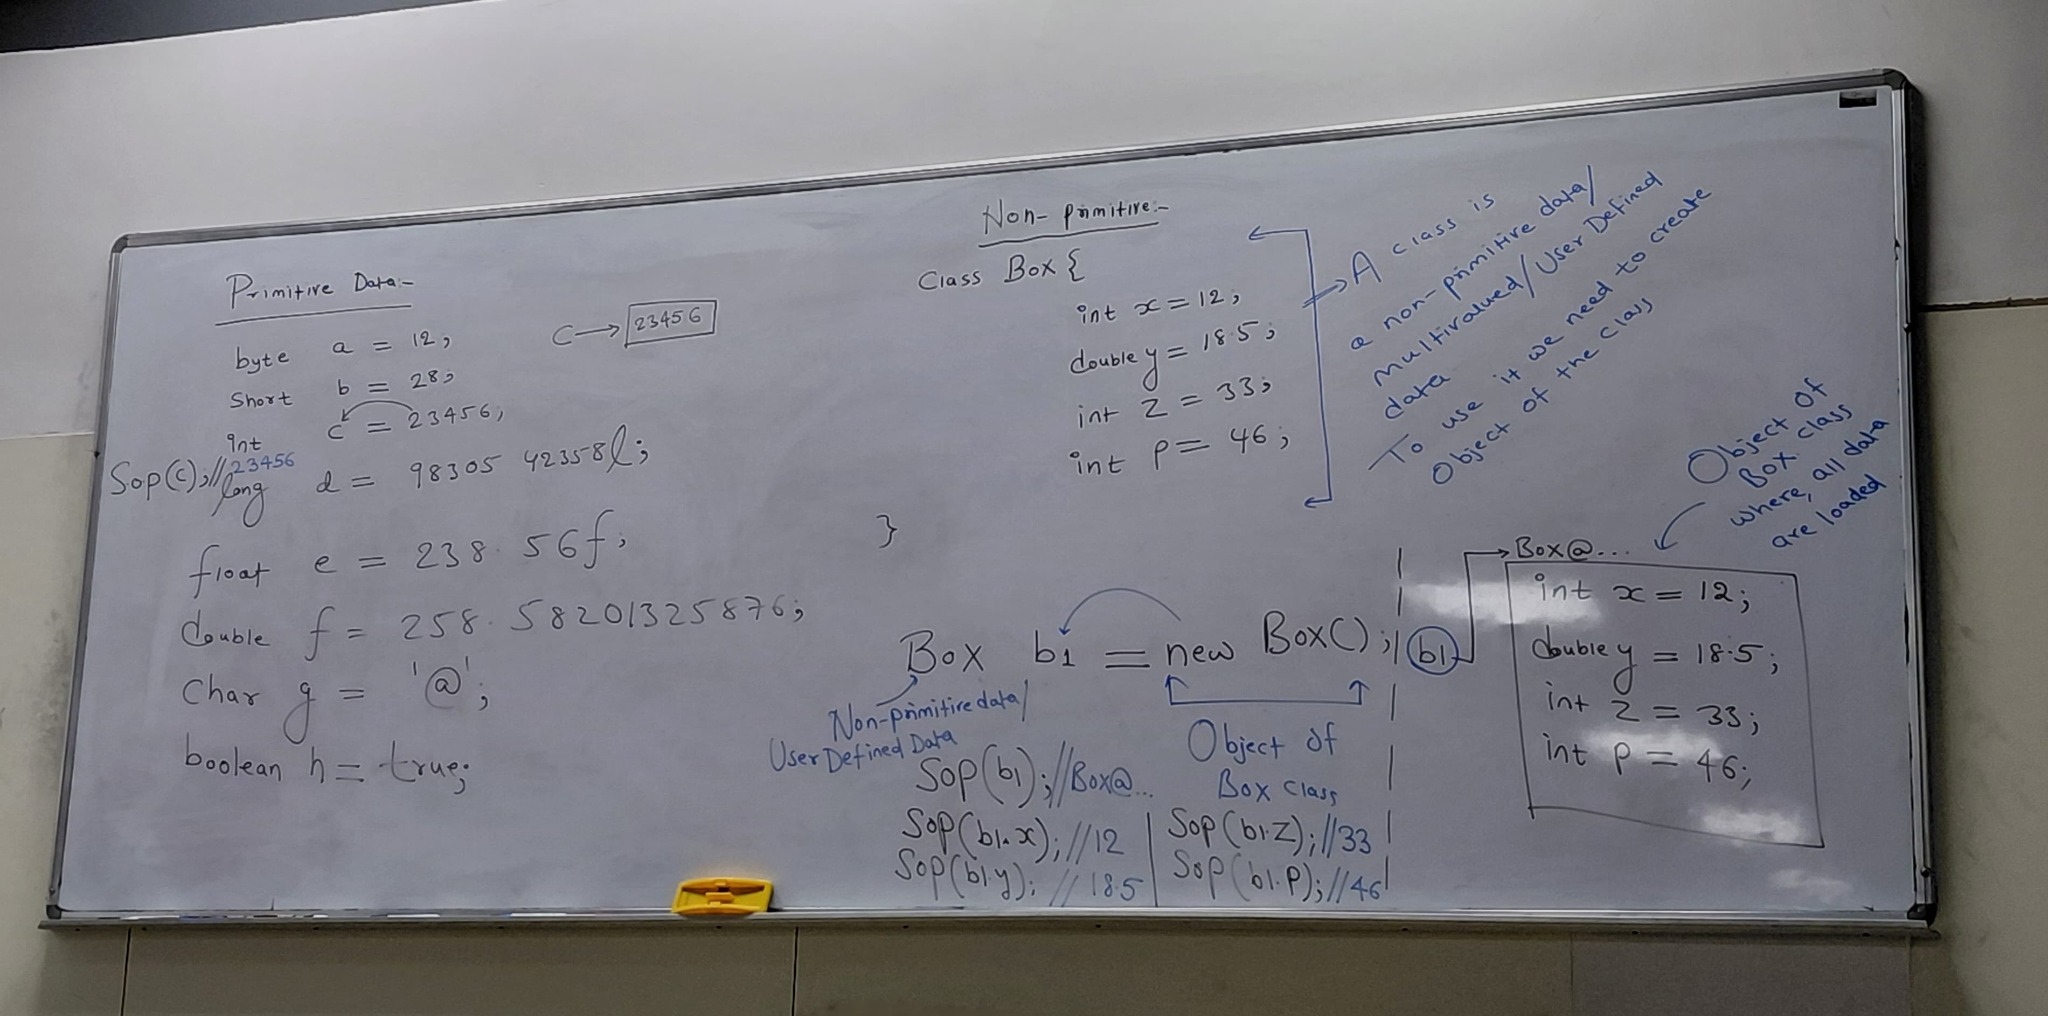 Primitive Data:-
byte a = 12;
Short b = 28;
int c = 23456;
C → 23456
Sop(c); // 23456
long d = 98305 42358l;
float e = 238.56f;
double f = 258.58201325876;
Char g = '@';
boolean h = true;
Non-primitive:-
Class Box {
int x = 12;
double y = 18.5;
int z = 33;
int p = 46;
}
→ A class is
a non-primitive data/
multivalued/User Defined
data
To use it we need to create
Object of the class
Box b1 = new Box();
Non-primitive data/
User Defined Data
Object of
Box class
Sop(b1); // Box@...
Sop(b1.x); // 12
Sop(b1.y); // 18.5
Sop(b1.z); // 33
Sop(b1.p); // 46
b1
→ Box@...
int x = 12;
double y = 18.5;
int z = 33;
int p = 46;
Object of
Box class
where, all data
are loaded